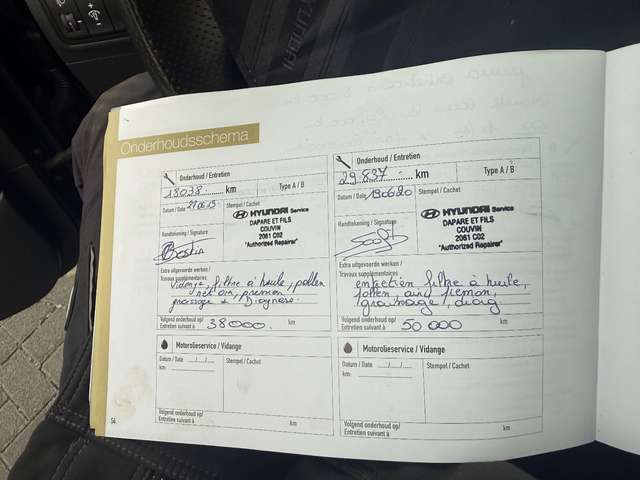 Onderhoudsschema
Onderhoud / Entretien
18038 km
Type A / B
Datum / Date 270619
Stempel / Cachet
HYUNDAI Service
DAPARE ET FILS
COUVIN
2061 C02
"Authorized Repairer"
Handtekening / Signature
Extra uitgevoerde werken /
Travaux supplémentaires
Vidange, filtre à huile, pollen
graissage
Volgend onderhoud op/
Entretien suivant à 38000 km
Motorolieservice / Vidange
Datum / Date / /
Stempel / Cachet
km:
Volgend onderhoud op/
Entretien suivant à km
Onderhoud / Entretien
29.837 km
Type A / B
Datum / Date 190620
Stempel / Cachet
HYUNDAI Service
DAPARE ET FILS
COUVIN
2061 C02
"Authorized Repairer"
Handtekening / Signature
Extra uitgevoerde werken /
Travaux supplémentaires
entretien filtre à huile,
pollen,
diag
Volgend onderhoud op/
Entretien suivant à 50 000 km
Motorolieservice / Vidange
Datum / Date / /
Stempel / Cachet
km:
Volgend onderhoud op/
Entretien suivant à km
56